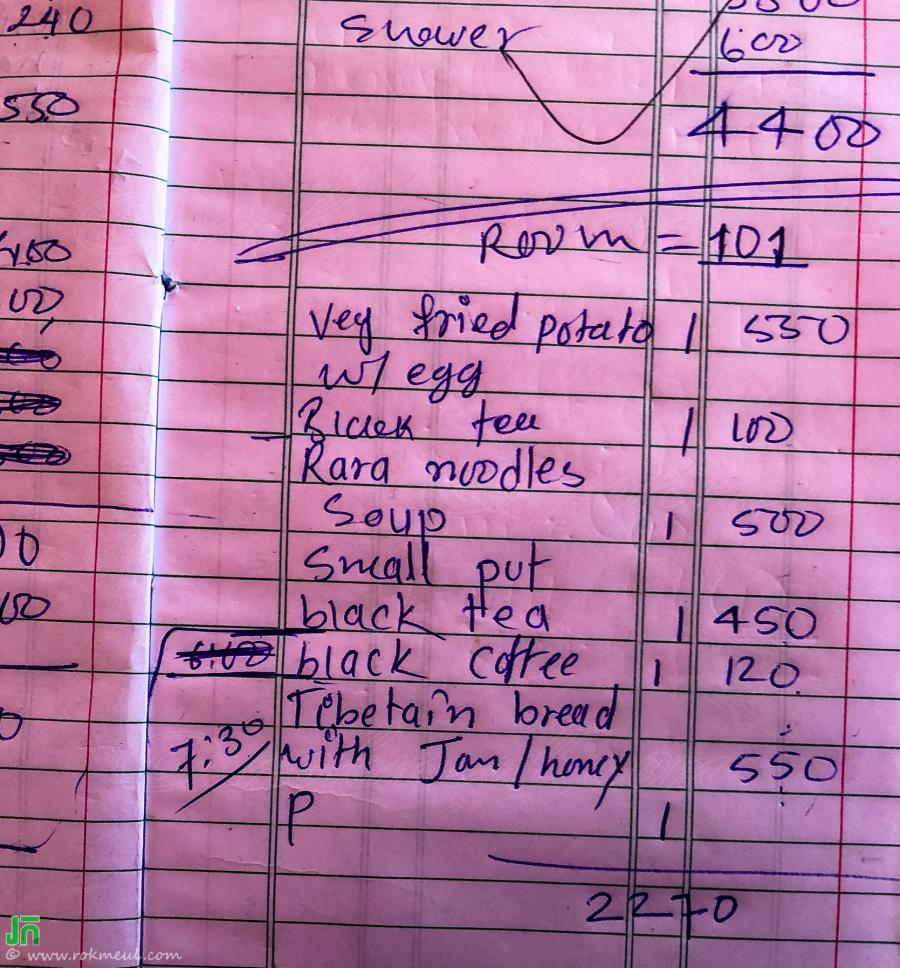 240
550
450
100
00
Shower
600
4400
Room = 101
Veg fried potato 1 550
w/ egg
Black tea 1 100
Rara noodles
Soup 1 500
Small pot
black tea 1 450
black coffee 1 120
Tibetain bread
7:30 with Jam/honey 550
P 1
2270
Jñ
© www.rokmeul.com